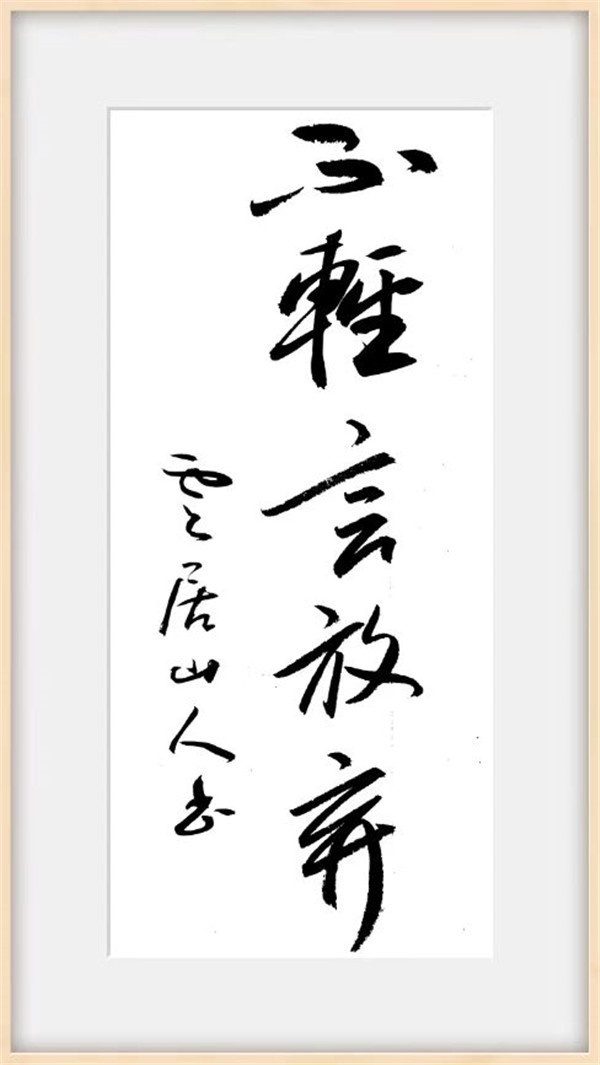 不輕言放弃
雲居山人书